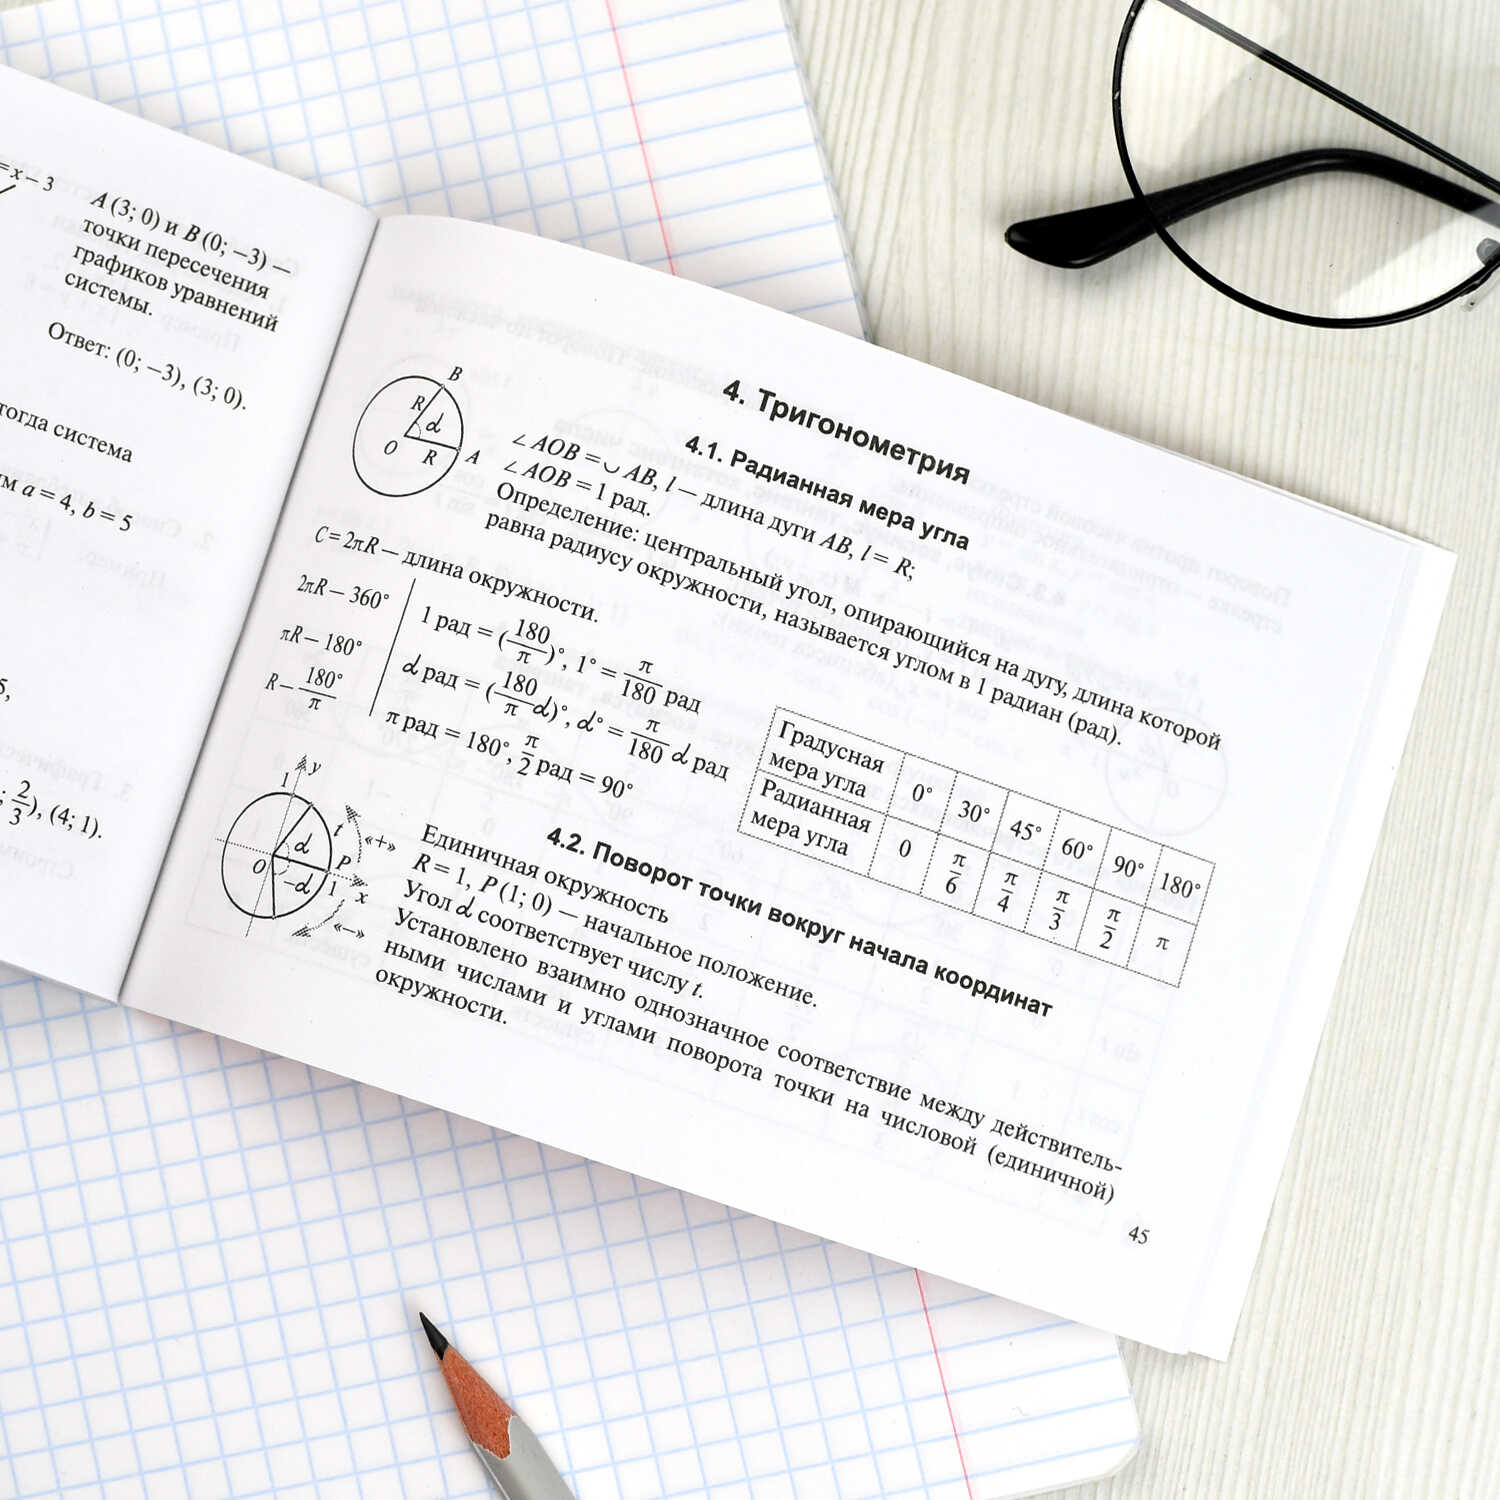 = x − 3
A (3; 0) и B (0; −3) —
точки пересечения
графиков уравнений
системы.
Ответ: (0; −3), (3; 0).
тогда система
a = 4, b = 5
5,
; 2/3), (4; 1).
4. Тригонометрия
4.1. Радианная мера угла
B
R
α
O
R
A
∠ AOB = ◡ AB, l — длина дуги AB, l = R;
∠ AOB = 1 рад.
Определение: центральный угол, опирающийся на дугу, длина которой
равна радиусу окружности, называется углом в 1 радиан (рад).
C = 2πR — длина окружности.
2πR — 360°
πR — 180°
R — 180°/π
1 рад = (180/π)°, 1° = π/180 рад
α рад = (180/π α)°, α° = π/180 α рад
π рад = 180°, π/2 рад = 90°
Градусная мера угла 0° 30° 45° 60° 90° 180°
Радианная мера угла 0 π/6 π/4 π/3 π/2 π
4.2. Поворот точки вокруг начала координат
1 y
t «+»
α
O P
−α 1 x
«−»
Единичная окружность
R = 1, P (1; 0) — начальное положение.
Угол α соответствует числу t.
Установлено взаимно однозначное соответствие между действитель-
ными числами и углами поворота точки на числовой (единичной)
окружности.
45